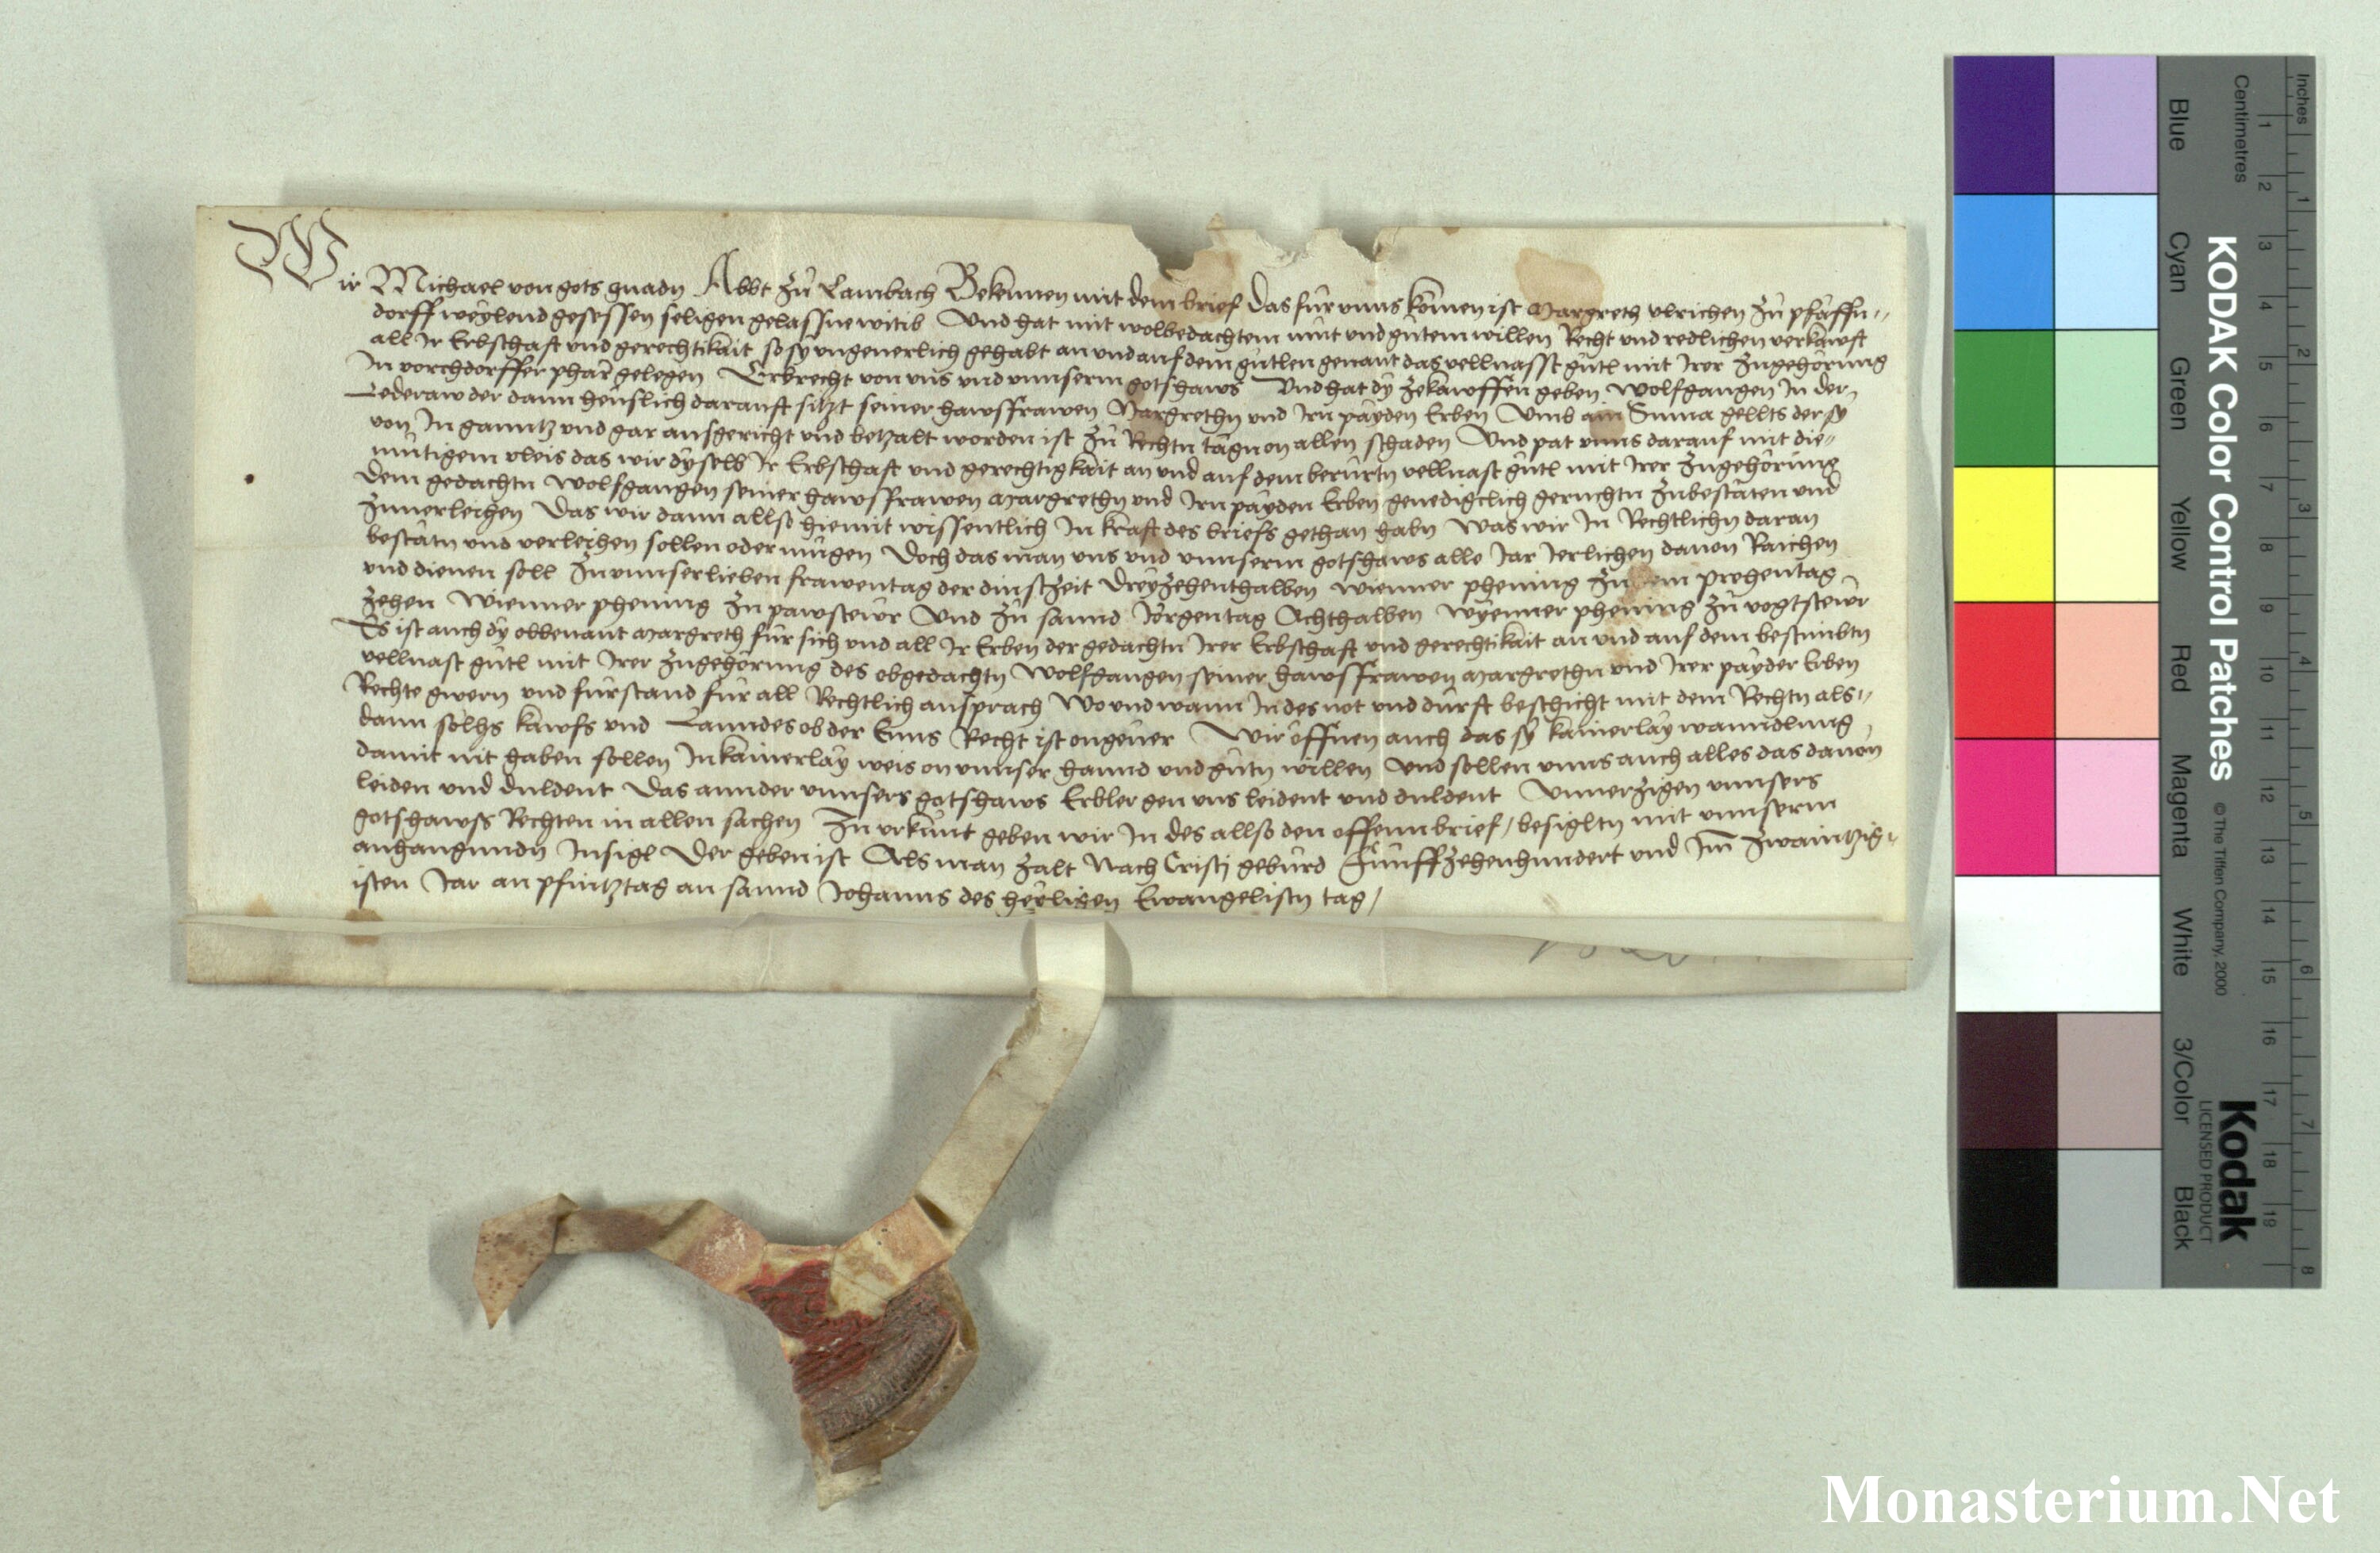 Wir Michael von gots gnadn Abbt zu Lambach Bekennen mit dem brief Das für vnns komen ist Margreth vlrichen zu pfaffn„
dorff weylend gesessen seligen gelassne witib Vnd hat mit wolbedachtem mut vnd gutem willen Recht vnd redlichen verkawft
all Ir Erbschaft vnd gerechtikait so sy vngeuerlich gehabt an vnd auf dem gutlen genant das vellnasst gutl mit Irer zugehorung
In vorchdorffer pharr gelegen Erbrecht von vns vnd vnnserm gotshaws Vnd hat dy zekawffen geben Wolfgangen In der
Lederaw der dann heuslich darauff sitzt seiner hawsfrawen Margrethn vnd Irn payden Erben Vmb ain Suma gellts der sy
von In ganntz vnd gar ausgericht vnd betzalt worden ist zu Rechtn tagn on allen schaden Vnd pat vnns darauf mit die„
mutigem vleis das wir dyselb Ir Erbschaft vnd gerechtigkait an vnd auf dem berurtn vellnast gutl mit Irer zugehorung
dem gedachtn Wolfgangen seiner hawsfrawen Margrethn vnd Irn payden Erben genedigclich geruchtn zubestaten vnd
zuuerleihen Das wir dann allso hiemit wissentlich In kraft des briefs gethan habn Was wir In Rechtlichn daran
bestatn vnd verleihen sollen oder mugen Doch das man vns vnd vnnserm gotshaws alle Jar Jerlichen dauon Raichen
vnd dienen soll Zu vnnser lieben frawentag der dinstzeit Dreyzehenthalben wienner phening zu dem prehentag
zehen Wienner phening zu pawstewr Vnd zu sannd Jorgentag Achthalben wyenner phening zu vogtstewr
Es ist auch dy obbenant Margreth für sich vnd all Ir Erben der gedachtn Irer Erbschaft vnd gerechtikait an vnd auf dem bestimbtn
vellnast gutl mit Irer zugehorung des obgedachtn Wolfgangen seiner hawsfrawen Margrethn vnd Irer payder Erben
Rechte gwern vnd furstand für all Rechtlich ansprach Wo vnd wann In des not vnd durft beschicht mit dem Rechtn als„
dann solhs kawfs vnd Lanndes ob der Enns Recht ist ongeuer Wir offnen auch das sy kainerlay wanndlung
damit nit haben sollen In kainerlay weis on vnnser hannd vnd gutn willen Vnd sollen vnns auch alles das dauon
leiden vnd duldent Das annder vnnsers gotshaws Erbler gen vns leident vnd duldent Vnuerzigen vnnsers
gotshawss Rechten in allen sachen Zu vrkunt geben wir In des allso den offenn brief / besigltn mit vnnserm
anhangundn Insigl Der geben ist Als man zalt Nach Cristj geburd Funffzehenhundert vnd Im zwaintzig„
isten Jar an pfintztag an sannd Johanns des heyligen Ewangelistn tag /
KODAK Color Control Patches
© The Tiffen Company, 2000
Kodak
LICENSED PRODUCT
Inches 1 2 3 4 5 6 7 8
Centimetres 1 2 3 4 5 6 7 8 9 10 11 12 13 14 15 16 17 18 19
Blue Cyan Green Yellow Red Magenta White 3/Color Black
Monasterium.Net